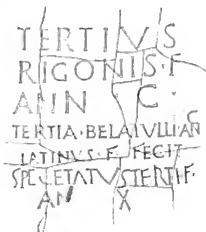 TERTIVS
RIGONIS·F
ANN C·
TERTIA·BELATVLLI·AN C
LATINVS·F·FECIT
SPECTATVS TERTI·F·
AN X